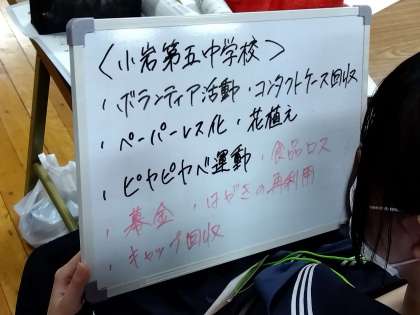 〈小岩第五中学校〉
・ボランティア活動 ・コンタクトケース回収
・ペーパーレス化 ・花植え
・ピヤピヤベ運動 ・食品ロス
・募金 ・はがきの再利用
・キャップ回収